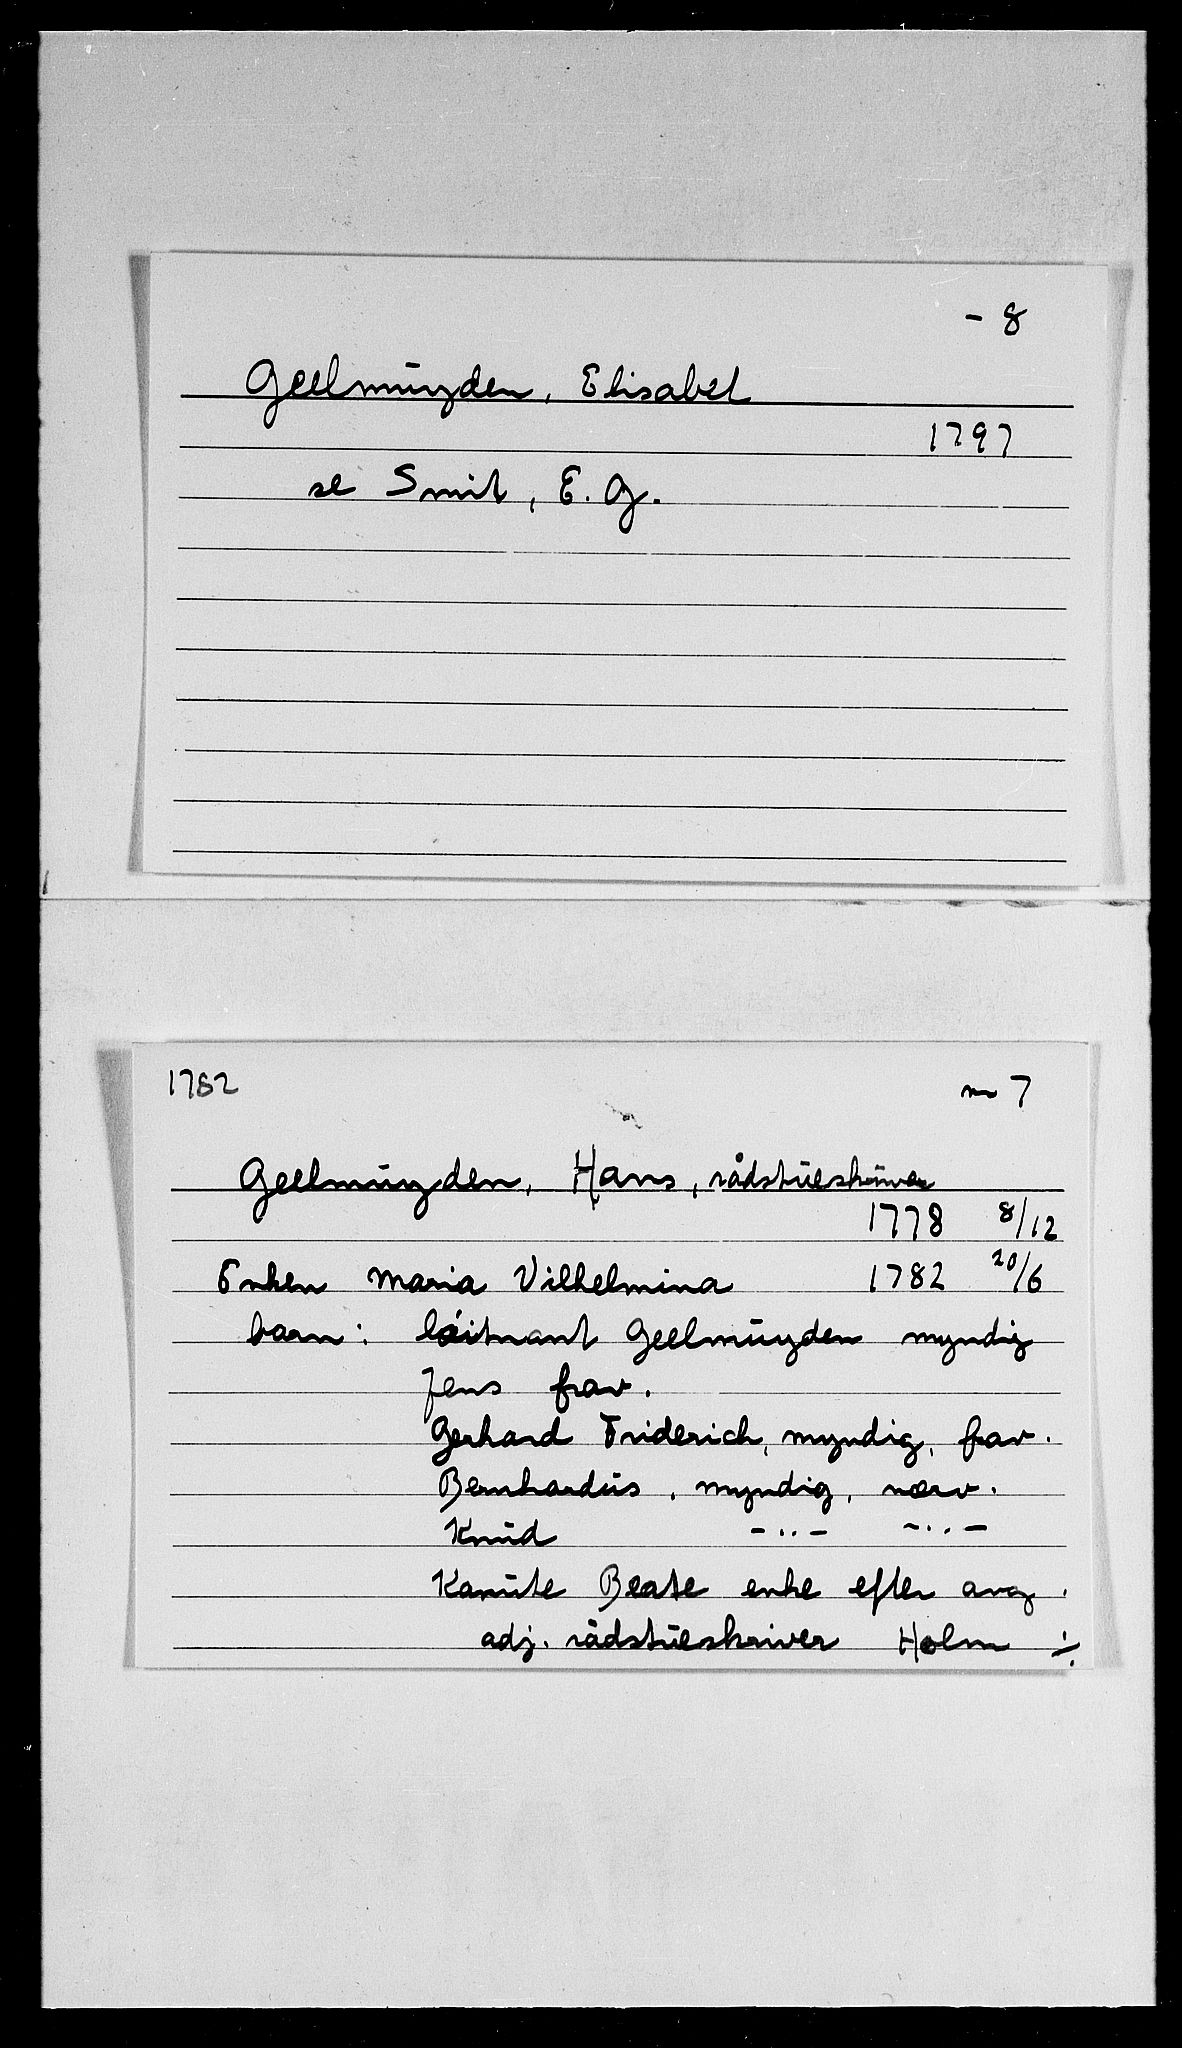 - 8
Geelmuyden, Elisabet
1797
se Smit, E. G.
1782 m 7
Geelmuyden, Hans, rådstueskriver
1778 8/12
Enken Maria Vilhelmina 1782 20/6
barn: løitnant Geelmuyden myndig
Jens frav.
Gerhard Friderich, myndig, frav.
Bernhardus, myndig, nærv.
Knud -..- -..-
Kanute Beate enke efter avg.
adj. rådstueskriver Holm ./.